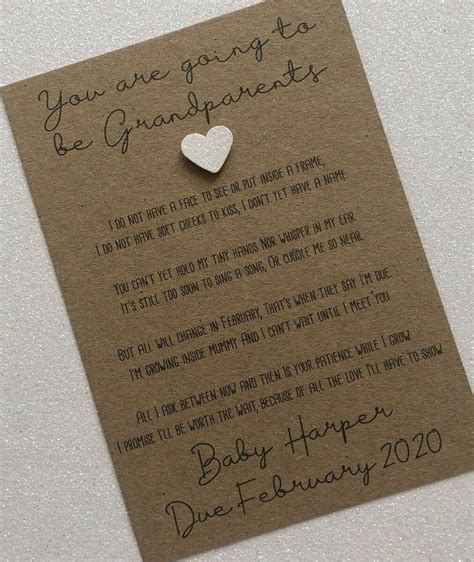 You are going to
be Grandparents
I do not have a face to see or put inside a frame,
I do not have soft cheeks to kiss, I don't yet have a name
You can't yet hold my tiny hands Nor whisper in my ear
It's still too soon to sing a song, Or cuddle me so near.
But all will change in February, That's when they say I'm due.
I'm growing inside Mummy And I can't wait until I meet you.
All I ask between now and then Is your patience while I grow
I promise I'll be worth the wait, because of all the love I'll have to show
Baby Harper
Due February 2020